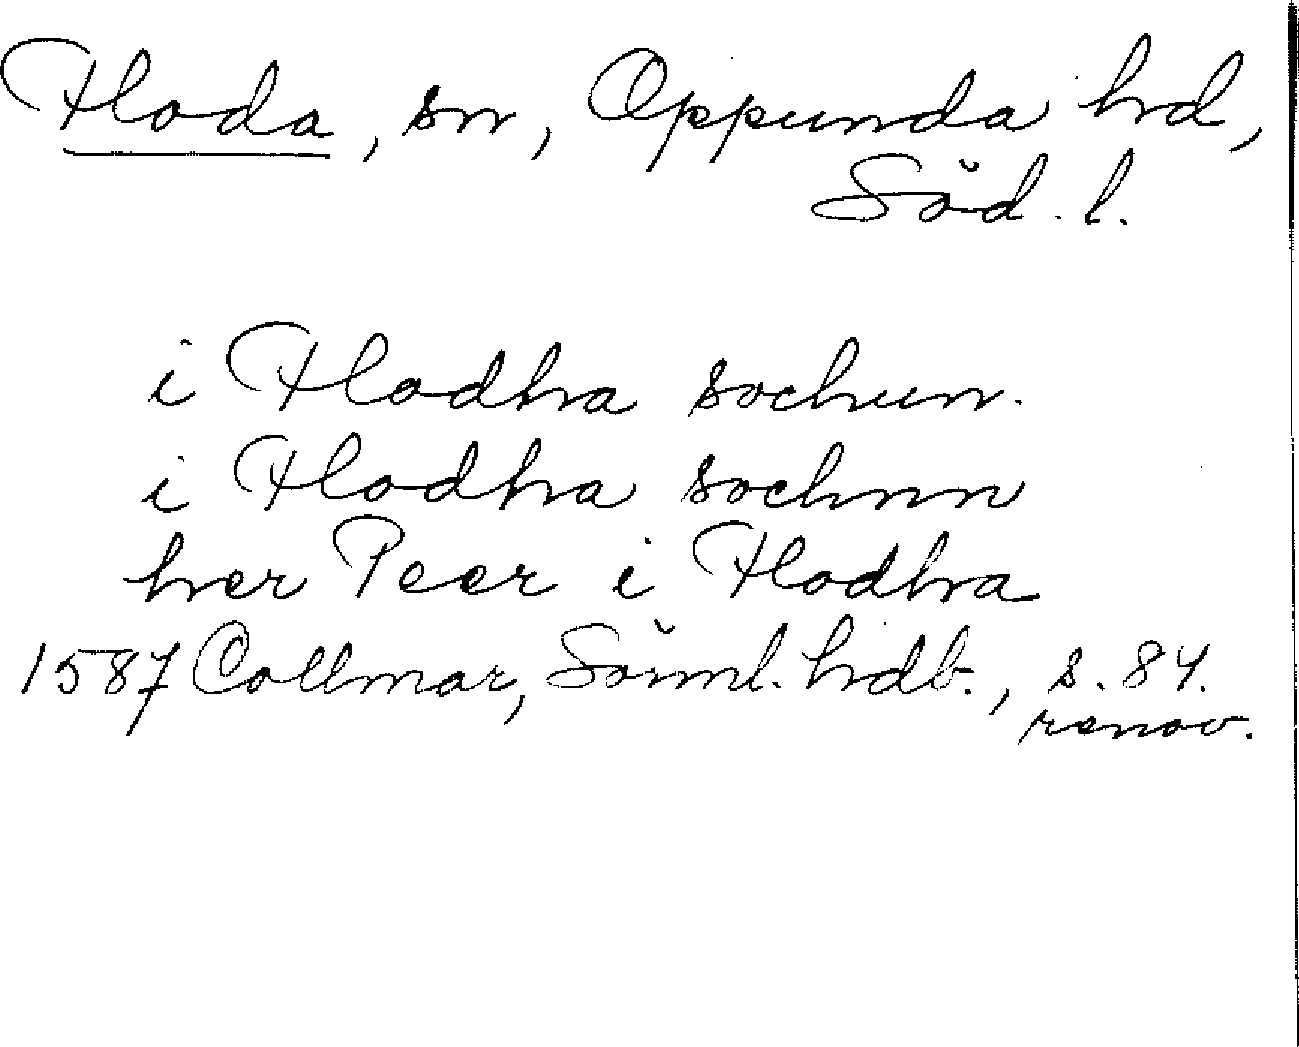 Floda, sn, Oppunda hd,
Söd. l.
i Flodha sochun.
i Flodha sochnn
her Peer i Flodha
1587 Collmar, Sörml. hdb., s. 84.
renov.